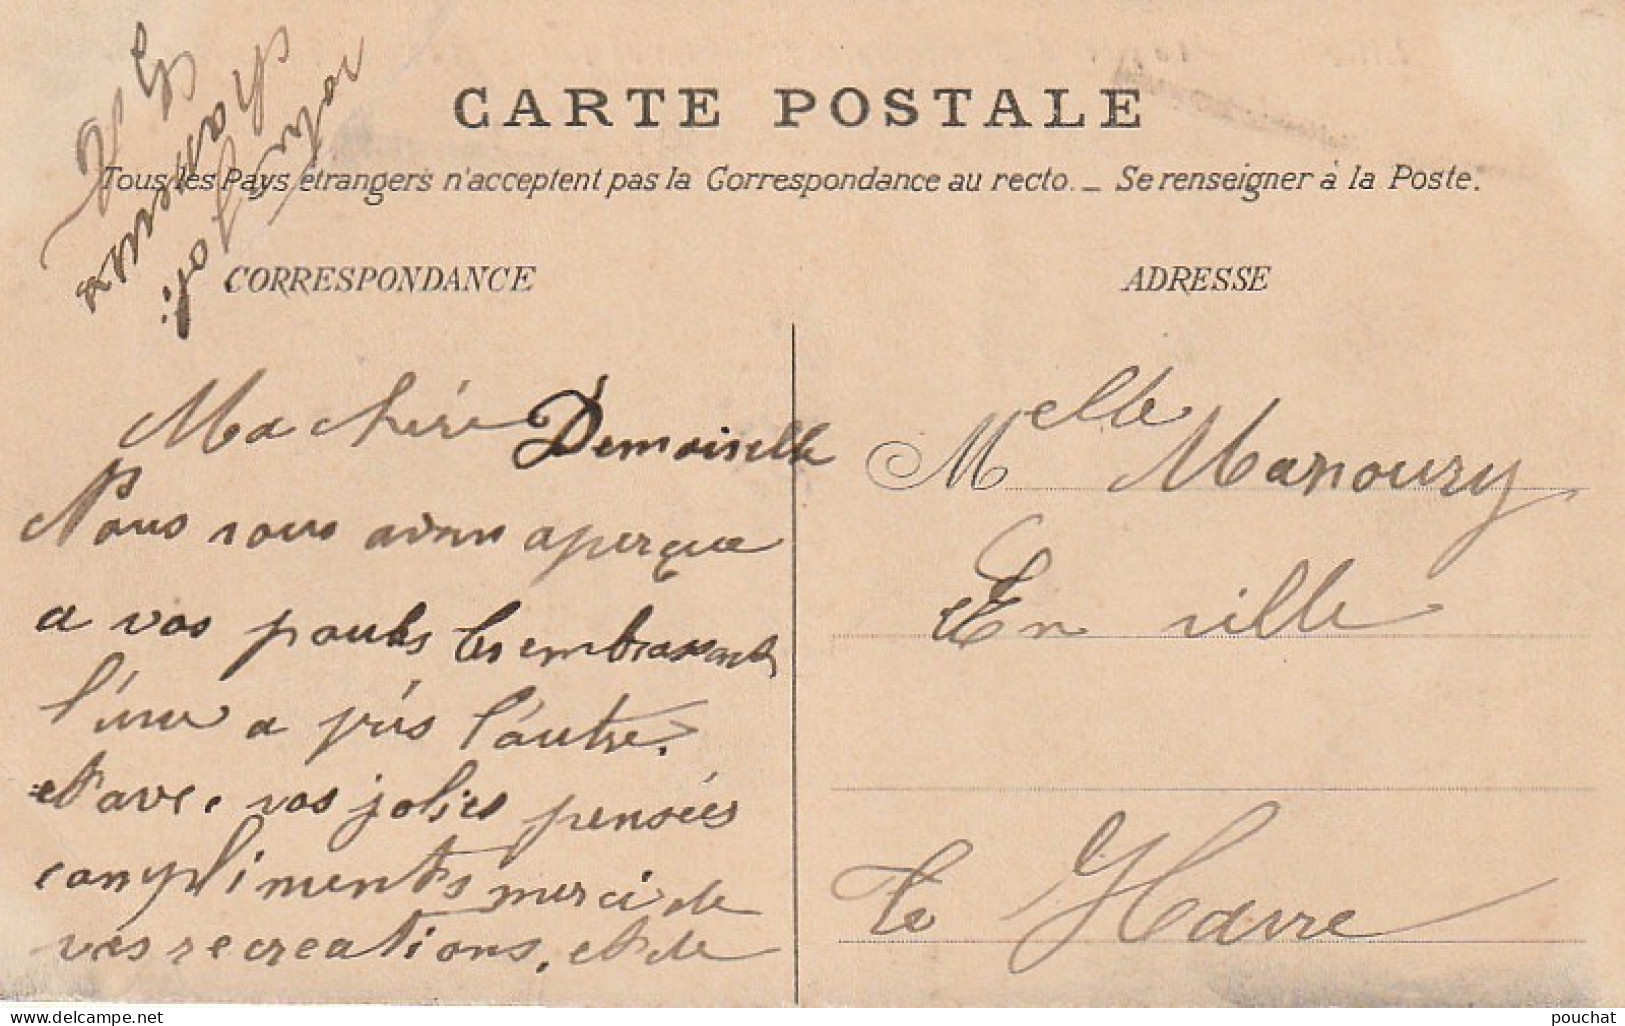 CARTE POSTALE
Tous les Pays étrangers n'acceptent pas la Correspondance au recto. _ Se renseigner à la Poste.
CORRESPONDANCE
ADRESSE
Ma chére Demoiselle
Nous vous avons aperçue
a vos poules les embrassant
l'une a prés l'autre.
et avec vos jolies pensées
compliments merci de
vos recreations, et de
votre joli
amusons
Melle Manoury
En ville
Le Havre
delcampe.net
pouchat